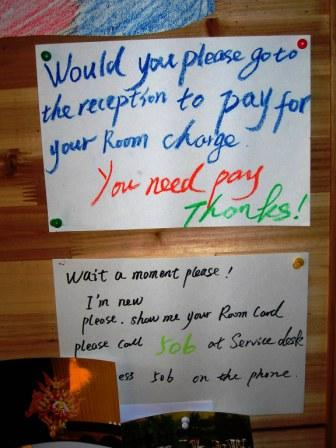 Would you please go to
the reception to pay for
your Room charge.
You need pay
Thonks!
Wait a moment please!
I'm new
please. show me your Room Card
please call 506 at Service desk
ess 506 on the phone.